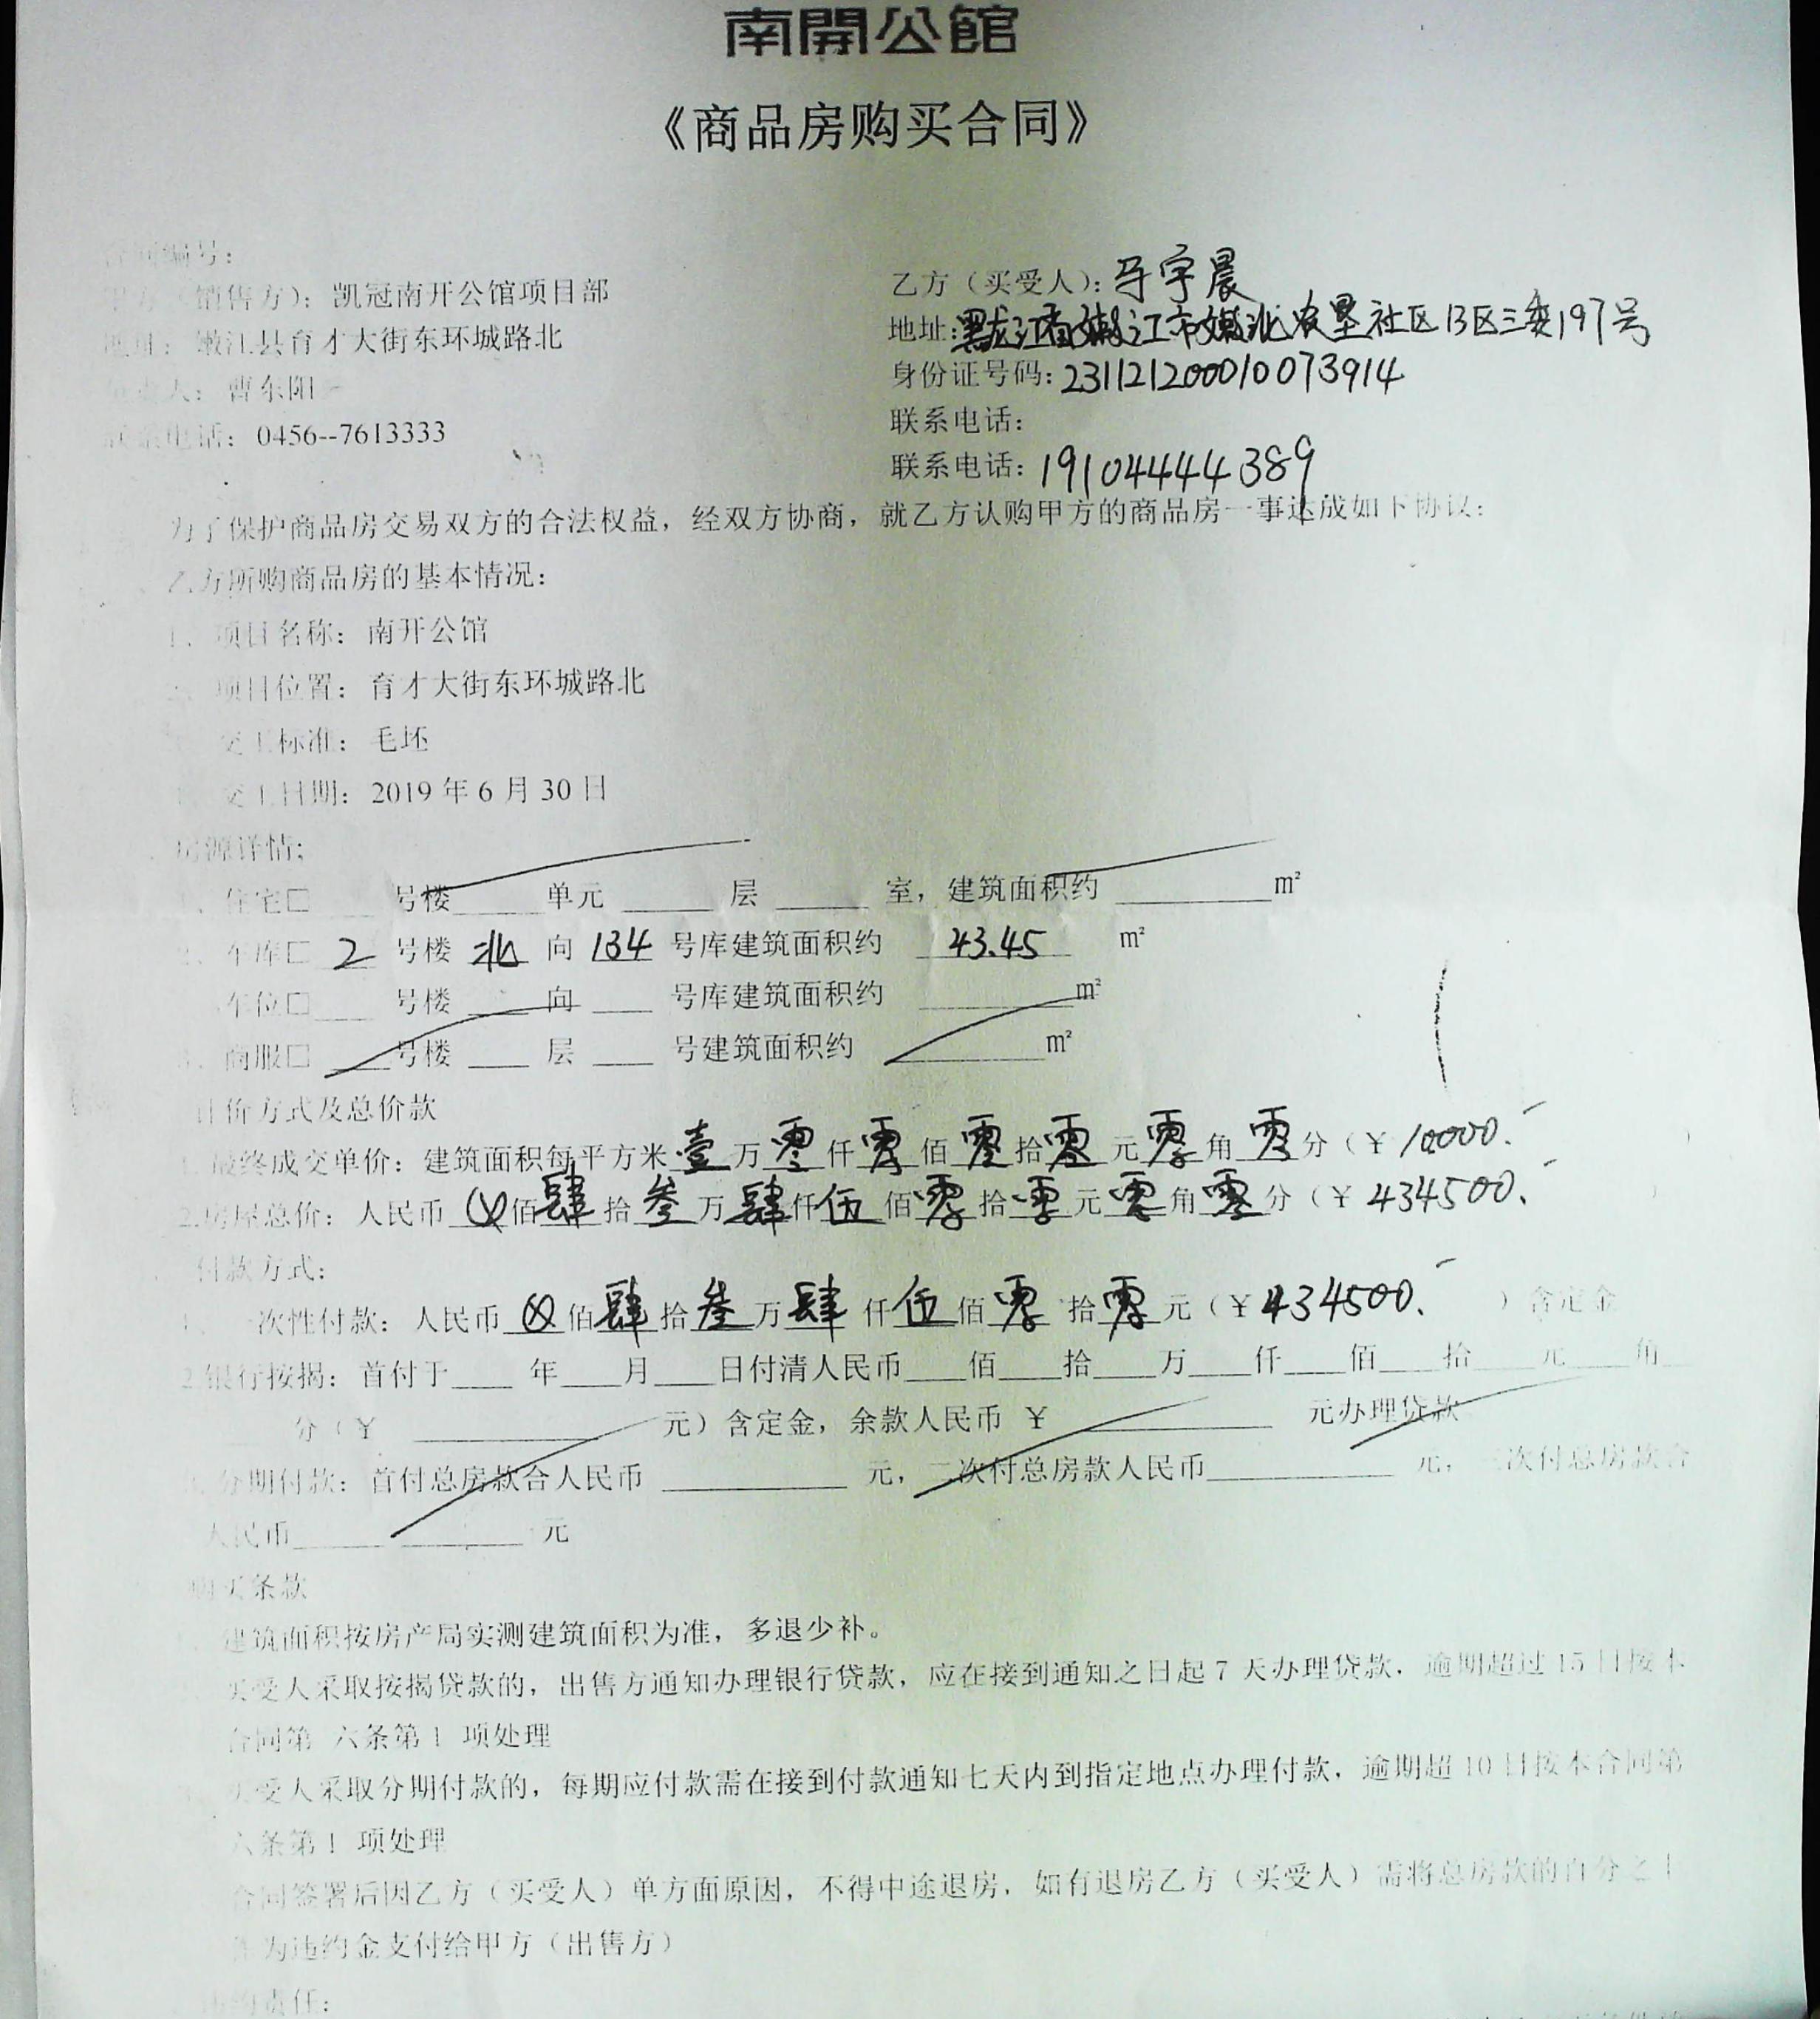 南開公館
《商品房购买合同》
合同编号：
甲方（销售方）：凯冠南开公馆项目部
地址：嫩江县育才大街东环城路北
负责人：曹东阳
联系电话：0456--7613333
乙方（买受人）：马宇晨
地址：黑龙江省嫩江市嫩北农垦社区B区三委197号
身份证号码：231121200010073914
联系电话：
联系电话：19104444389
为了保护商品房交易双方的合法权益，经双方协商，就乙方认购甲方的商品房一事达成如下协议：
乙方所购商品房的基本情况：
1、项目名称：南开公馆
2、项目位置：育才大街东环城路北
交工标准：毛坯
交工日期：2019年6月30日
房源详情：
1、住宅□____号楼______单元______层______室，建筑面积约__________㎡
2、车库□ 2 号楼 北 向 134 号库建筑面积约 43.45 ㎡
车位□____号楼____向____号库建筑面积约__________㎡
3、商服□____号楼____层____号建筑面积约__________㎡
计价方式及总价款
1.最终成交单价：建筑面积每平方米壹万零仟零佰零拾零元零角零分（￥10000.
2.房屋总价：人民币⊗佰肆拾叁万肆仟伍佰零拾零元零角零分（￥434500.
付款方式：
1、一次性付款：人民币⊗佰肆拾叁万肆仟伍佰零拾零元（￥434500. ）含定金
2.银行按揭：首付于____年____月____日付清人民币____佰____拾____万____仟____佰____拾____元____角__
____分（￥____________元）含定金，余款人民币￥____________元办理贷款
3.分期付款：首付总房款合人民币____________元，二次付总房款人民币____________元，三次付总房款合
人民币______ ________元
购买条款
建筑面积按房产局实测建筑面积为准，多退少补。
买受人采取按揭贷款的，出售方通知办理银行贷款，应在接到通知之日起7天办理贷款，逾期超过15日按本
合同第 六条第1 项处理
买受人采取分期付款的，每期应付款需在接到付款通知七天内到指定地点办理付款，逾期超10日按本合同第
六条第1 项处理
合同签署后因乙方（买受人）单方面原因，不得中途退房，如有退房乙方（买受人）需将总房款的百分之十
作为违约金支付给甲方（出售方）
违约责任：